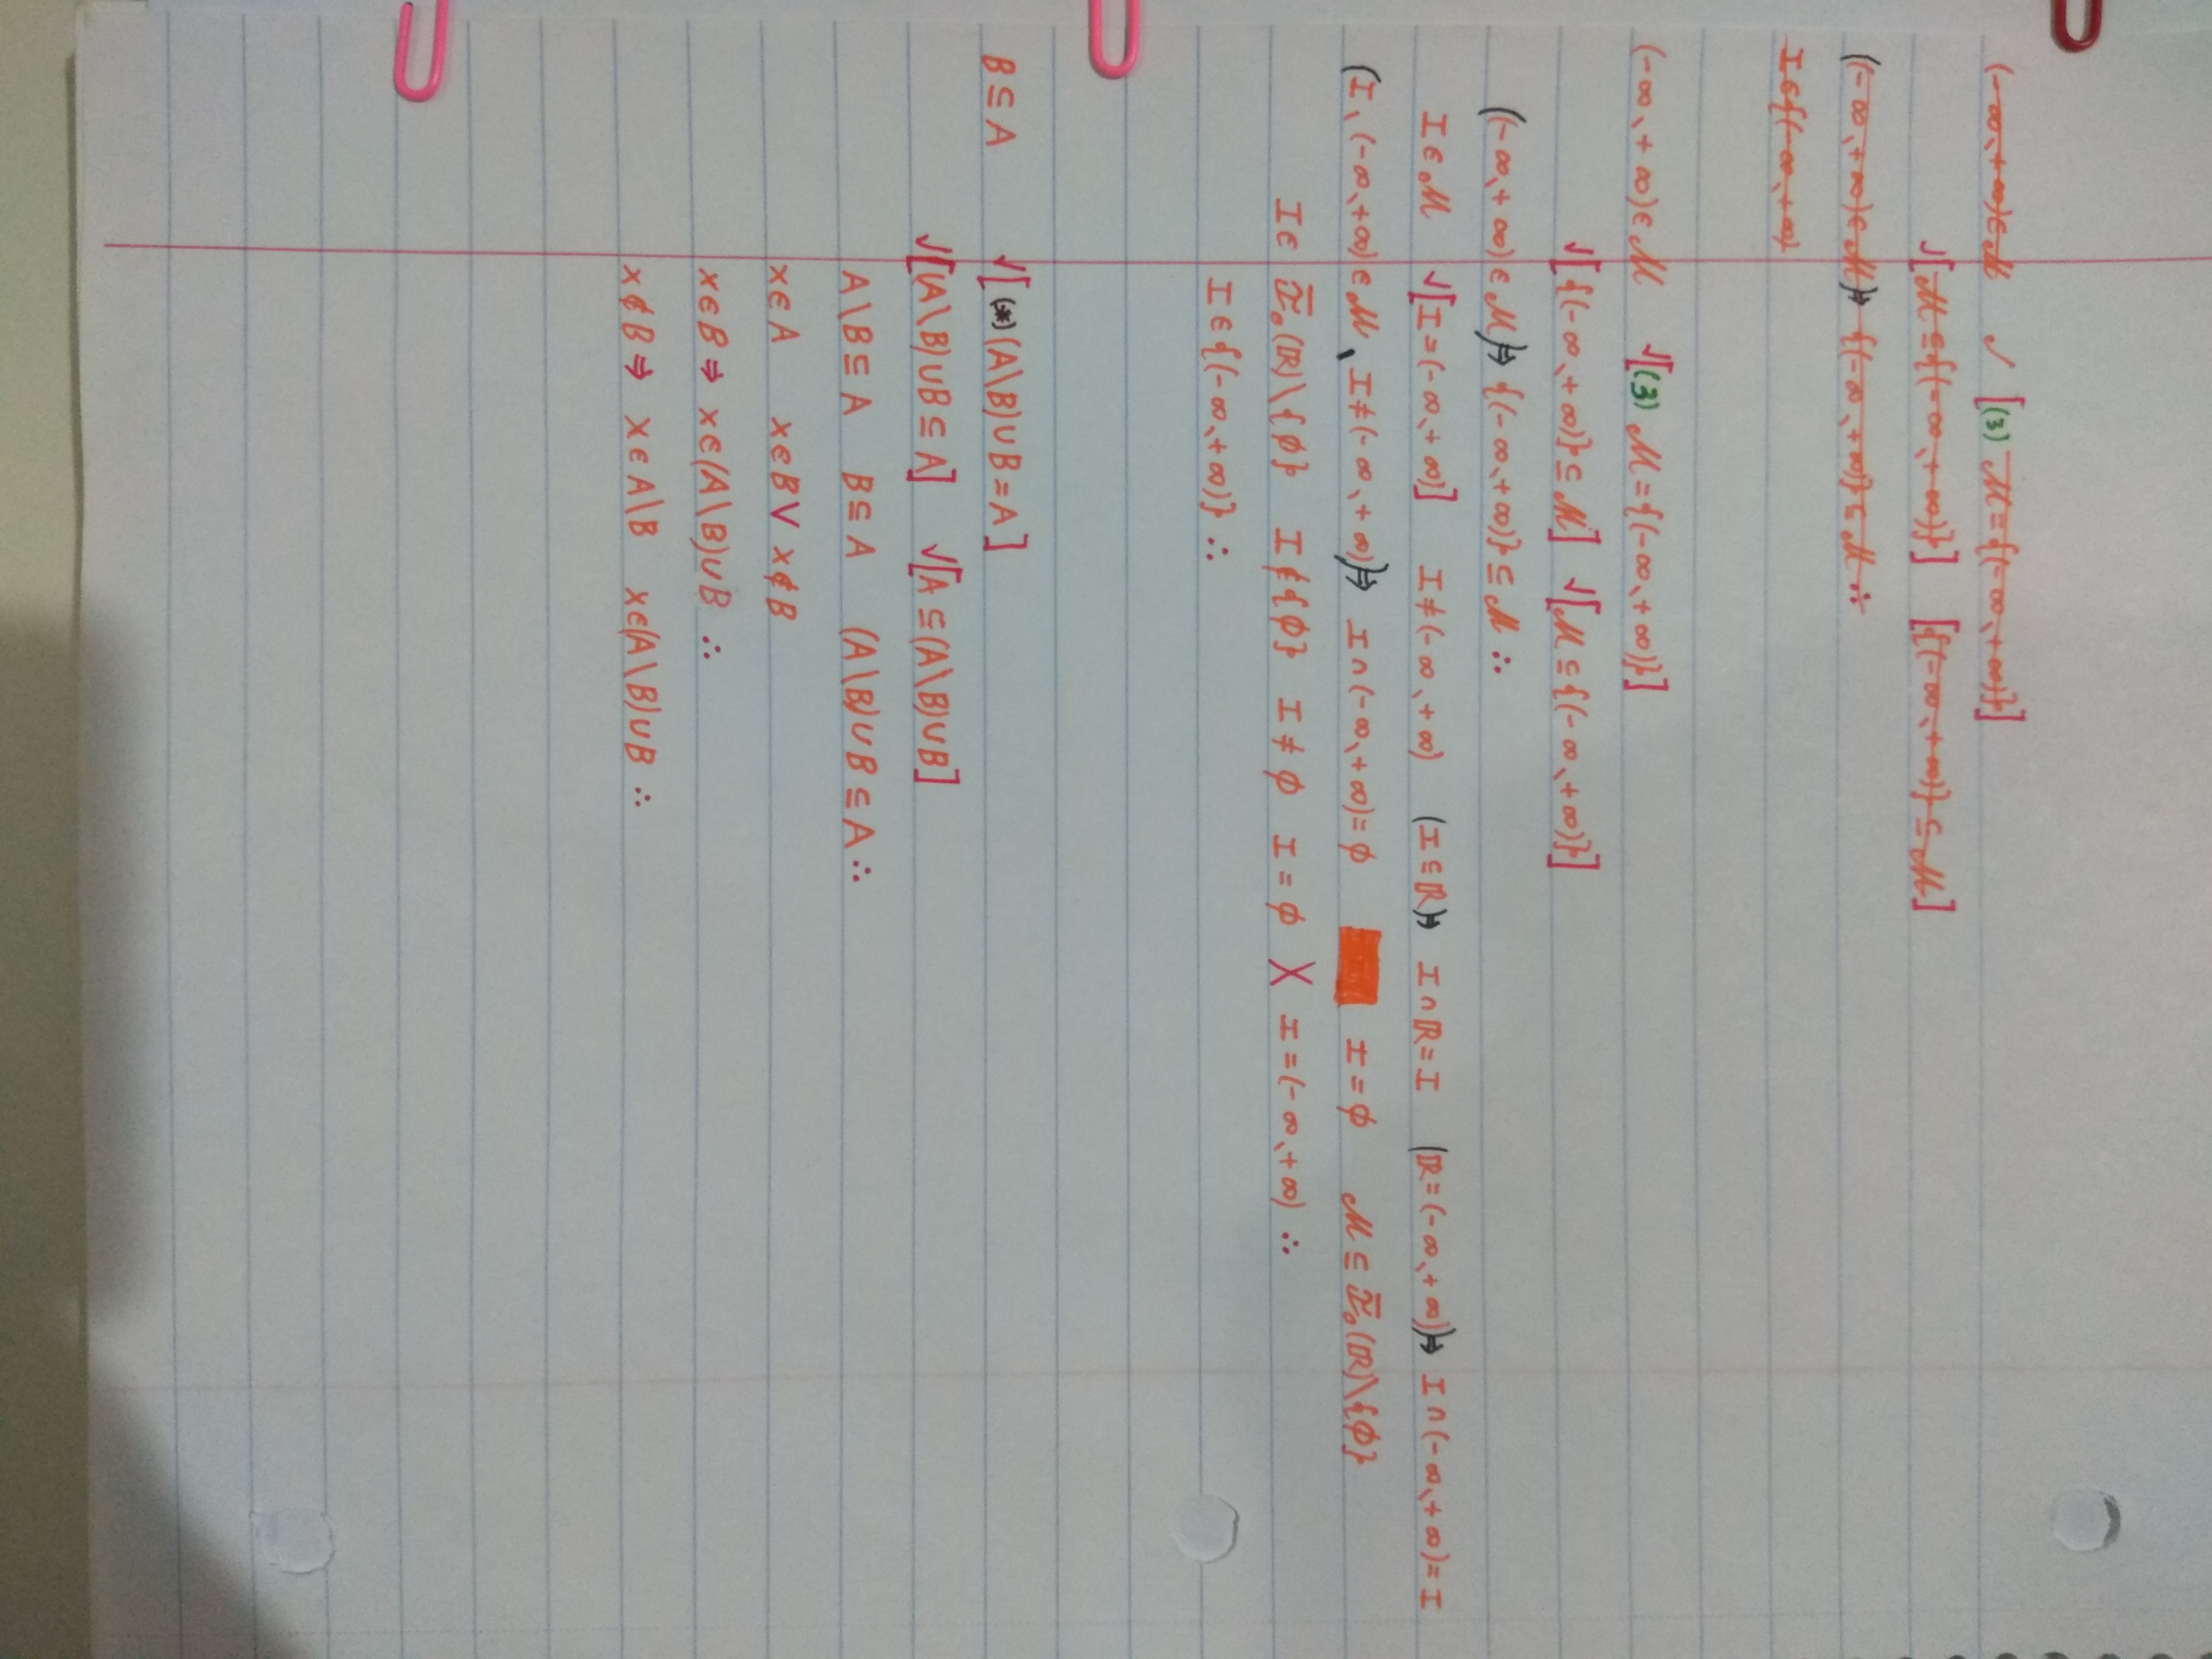 (-∞، +∞)∈ℳ ✓ [(3) ℳ={(-∞، +∞)}]
√[ℳ⊆{(-∞، +∞)}] [{(-∞، +∞)}⊆ℳ]
((-∞، +∞)∈ℳ)⇒ {(-∞، +∞)}⊆ℳ ∴
I∈{(-∞، +∞)
(-∞، +∞)∈ℳ √[(3) ℳ={(-∞، +∞)}]
√[{(-∞، +∞)}⊆ℳ] √[ℳ⊆{(-∞، +∞)}]
((-∞، +∞)∈ℳ)⇒ {(-∞، +∞)}⊆ℳ ∴
I∈ℳ √[I=(-∞، +∞)] I≠(-∞، +∞) (I⊆ℝ)⇒ I∩ℝ=I (ℝ=(-∞، +∞))⇒ I∩(-∞، +∞)=I
(I، (-∞، +∞)∈ℳ، I≠(-∞، +∞))⇒ I∩(-∞، +∞)=∅ I=∅ ℳ⊆ (ℝ)\{∅}
I∈ (ℝ)\{∅} I∉{∅} I≠∅ I=∅ X I=(-∞، +∞) ∴
I∈{(-∞، +∞)} ∴
B⊆A √[(*) (A\B)∪B=A]
√[(A\B)∪B⊆A] √[A⊆(A\B)∪B]
A\B⊆A B⊆A (A\B)∪B⊆A ∴
x∈A x∈B∨x∉B
x∈B⇒ x∈(A\B)∪B ∴
x∉B⇒ x∈A\B x∈(A\B)∪B ∴